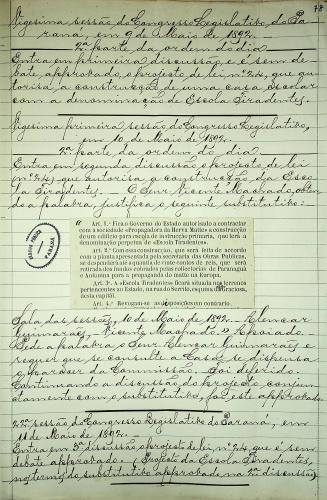 78
Vigesima sessão do Congresso Legislativo do Pa-
raná, em 9 de Maio de 1892.
2ª parte da ordem do dia
Entra em primeira discussão e é sem de-
bate approvado, o projecto de lei nº 24, que au-
torisa a construcção de uma casa escolar
com a denominação de Escola Tiradentes.
Vigesima primeira sessão do Congresso Legislativo,
em 10 de Maio de 1892.
2ª parte da ordem do dia
Entra em segunda discussão o projecto de lei
nº 24, que autorisa a construcção da Esco-
la Tiradentes. O Snr. Vicente Machado, obten-
do a palavra, justifica o seguinte substitutivo:
Art. 1.º Fica o Governo do Estado autorisado a contractar
com a sociedade «Propagadora da Herva Matte» a construcção
de um edificio para escola de instrucção primaria, que terá a
denominação perpetua de «Escola Tiradentes».
Art. 2.º Com essa construcção, que será feita de accordo
com a planta apresentada pela secretaria das Obras Publicas,
se despenderá até a quantia de vinte contos de reis, que será
retirada dos fundos cobrados pelas collectorias de Paranaguá
e Antonina para a propaganda do matte na Europa.
Art. 3.º A «Escola Tiradentes» ficará situada nos terrenos
pertencentes ao Estado, na rua do Serrito, esquina
desta capital.
Art. 4.º Revogam-se as disposições em contrario.
Sala das sessões, 10 de Maio de 1892. Alencar
Guimarães, Vicente Machado.» Apoiado.
Pede a palavra o Snr. Alencar Guimarães e
requer que se consulte a Casa se dispensa
o parecer da Commissão. Foi deferido.
Continuando a discussão do projecto conjun-
tamente com o substitutivo, foi este approvado.
22ª sessão do Congresso Legislativo do Paraná, em
11 de Maio de 1892.
Entra em 3ª discussão o projecto de lei nº 24, que é sem
debate approvado. (Projecto da Escola Tiradentes,
nos termos do substitutivo approvado na 2ª discussão)